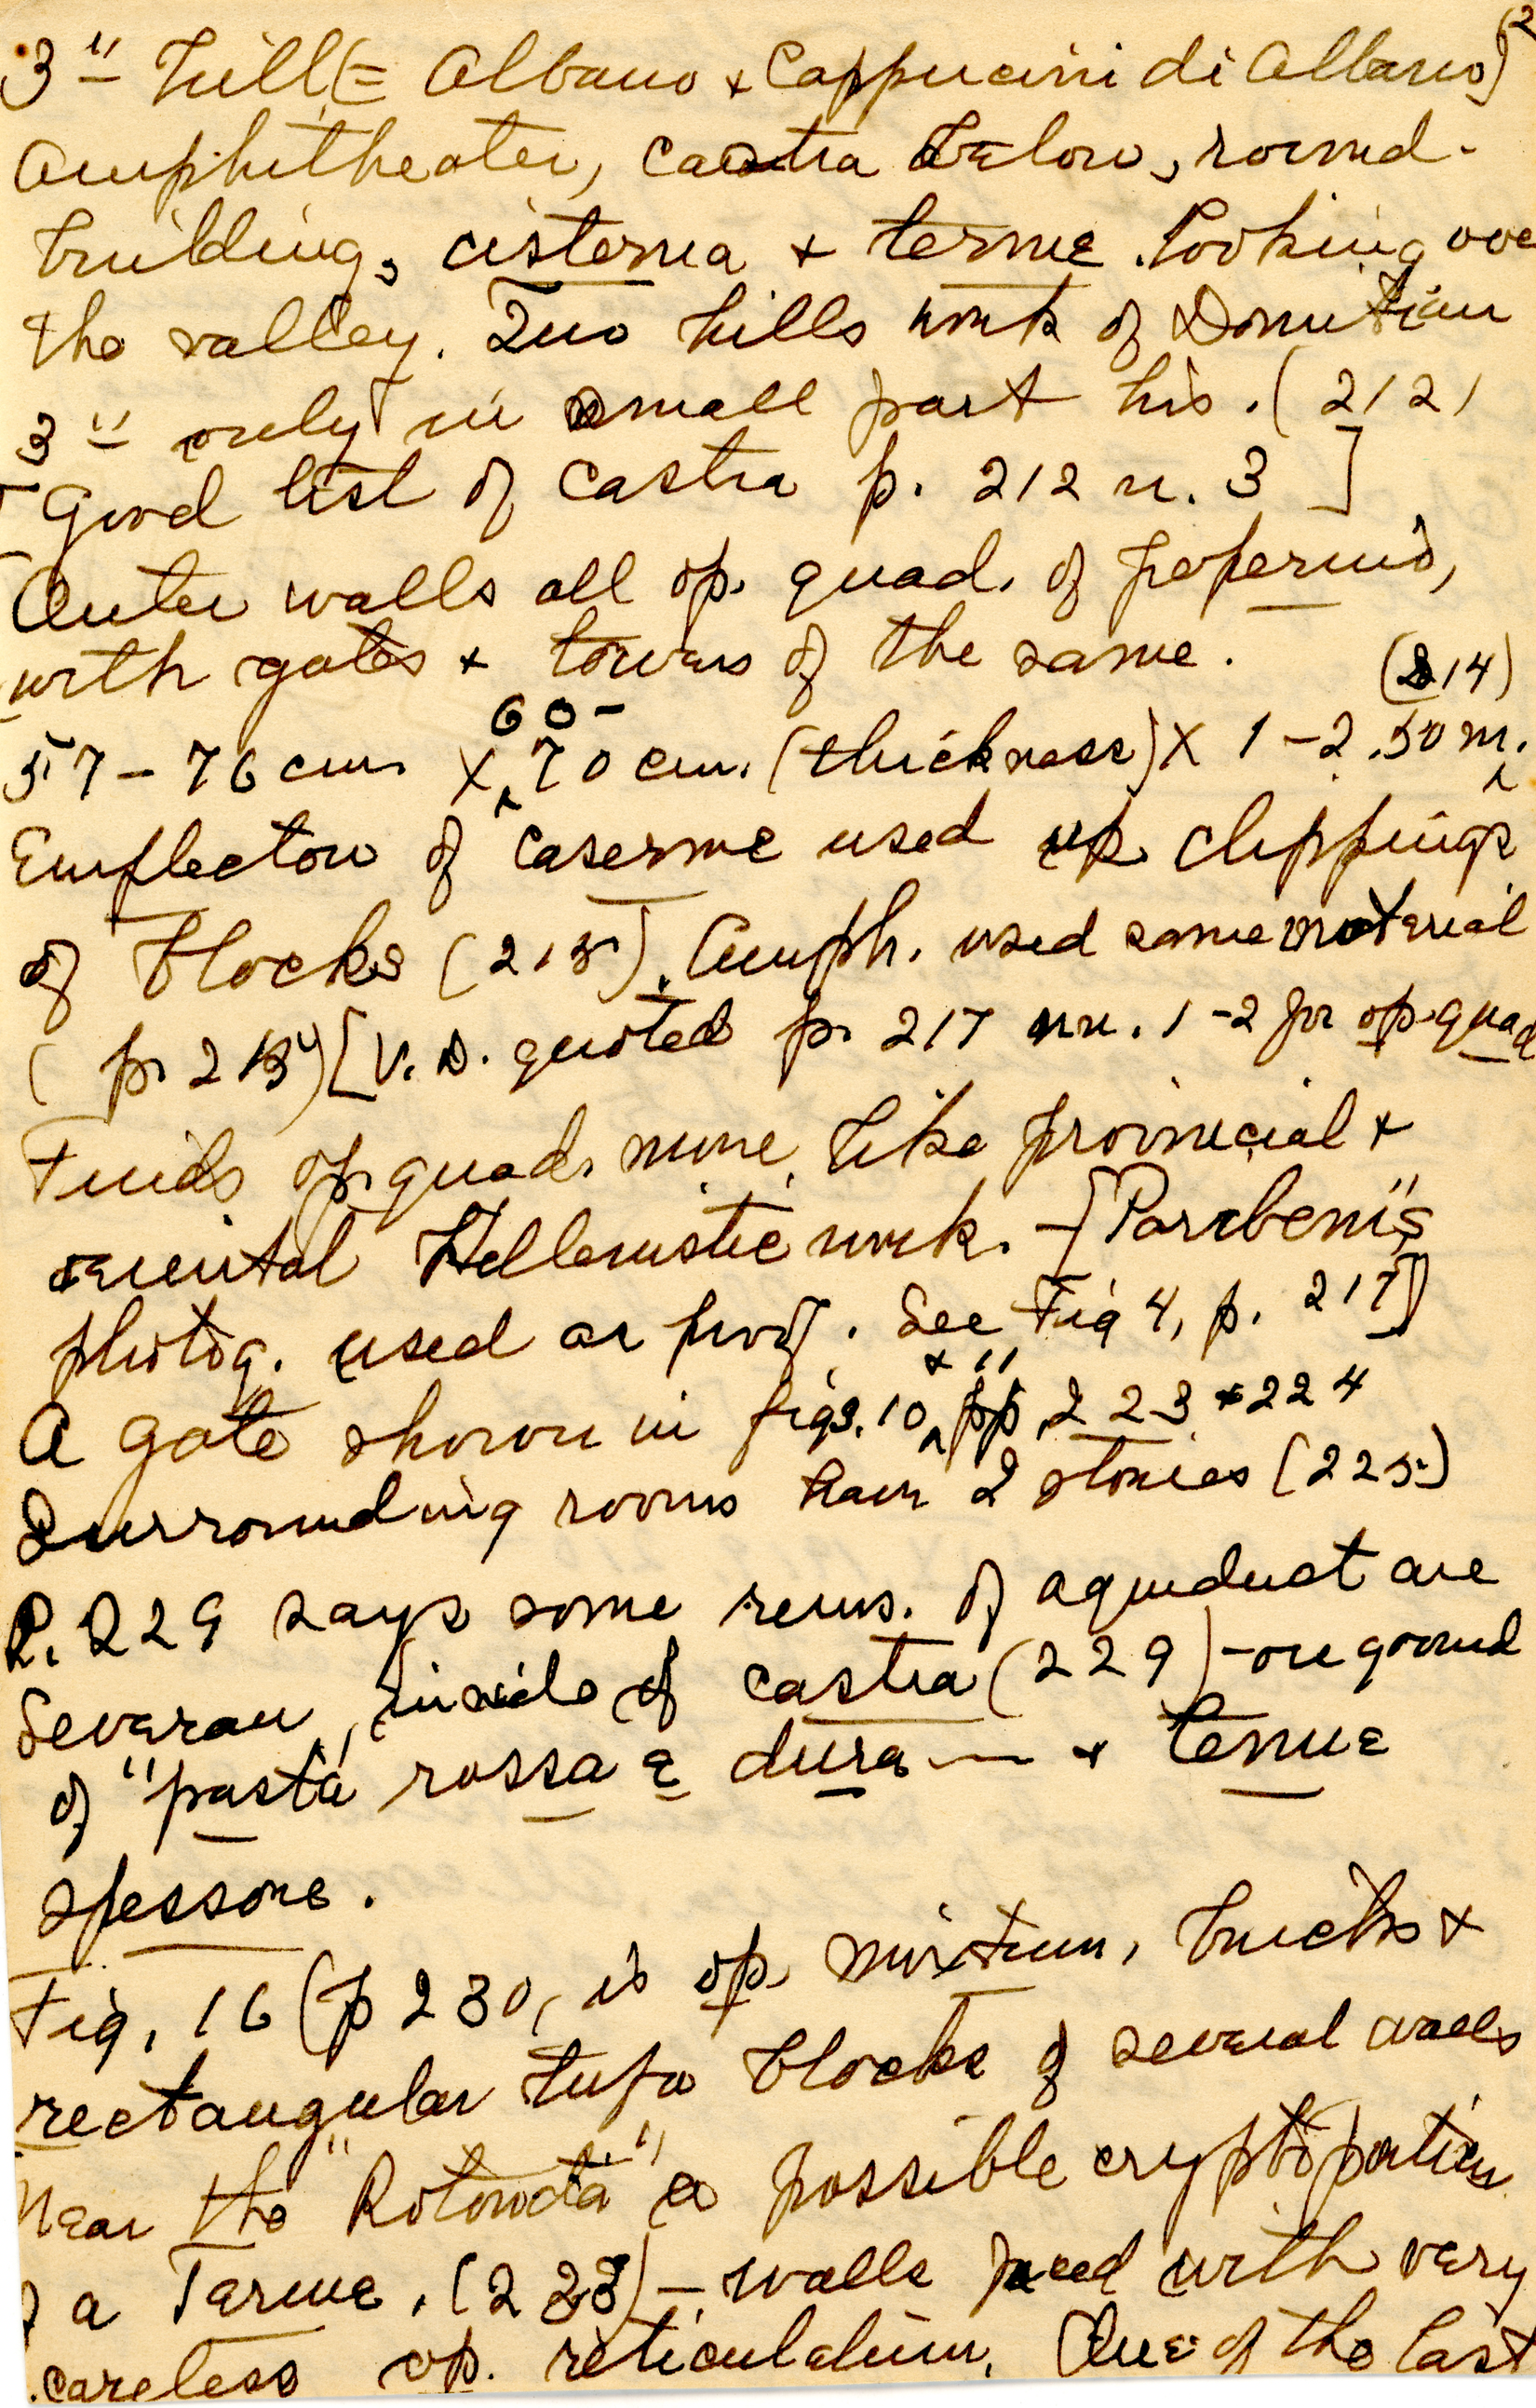 (2
3" hill (= Albano + Cappucini di Albano)
Amphitheater, castra below, round
building, cisterna + terme. Looking ove
the valley. Two hills work of Domitian
3" only in small part his. (212)
[Good list of castra p. 212 n. 3]
Outer walls all op. quad. of peperino,
with gates + towers of the same. (214)
57 - 76 cm. x 60-70 cm. (thickness) x 1 - 2.50 m.
Emplecton of caserme used up clippings
of blocks (215). Amph. used same material
(p. 215) [V. D. quoted p. 217 nn. 1-2 for op. quad
Finds op. quad. more like provincial +
oriental Hellenistic work. - [Paribeni's
photog. used as proof. See Fig 4, p. 217]
A gate shown in figs. 10 + 11, pp. 223 + 224
Surrounding rooms have 2 stories (225)
P. 229 says some rems. of aqueduct are
Severan, inside of castra (229) - on ground
of "pasta rossa e dura — + tenue
spessore.
Fig. 16 (p 230, is op. mixtum, bricks +
rectangular tufa blocks of several walls
Near the "Rotonda" a possible cryptoportico
of a Terme. (233) - walls faced with very
careless op. reticulatum. One of the last